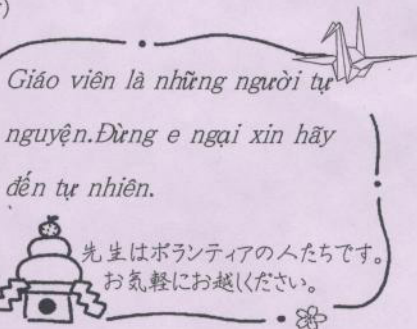 Giáo viên là những người tự
nguyện.Đừng e ngại xin hãy
đến tự nhiên.
先生はボランティアの人たちです。
お気軽にお越しください。